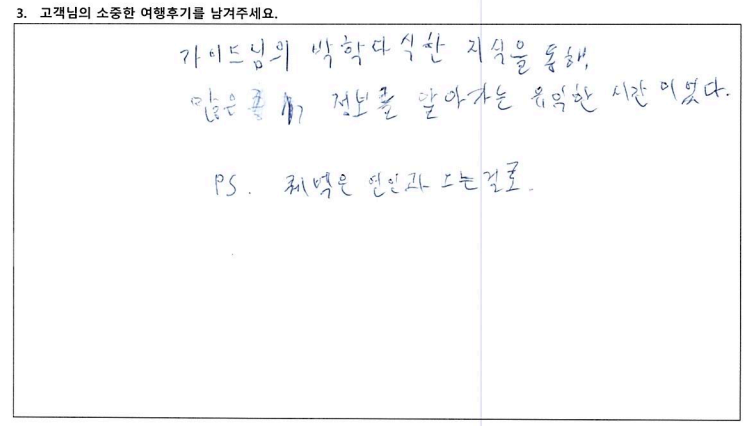 3. 고객님의 소중한 여행후기를 남겨주세요.
가이드님의 박학다식한 지식을 통해,
많은 정보를 알아가는 유익한 시간이었다.
PS. 새벽은 연인과 드는걸로.